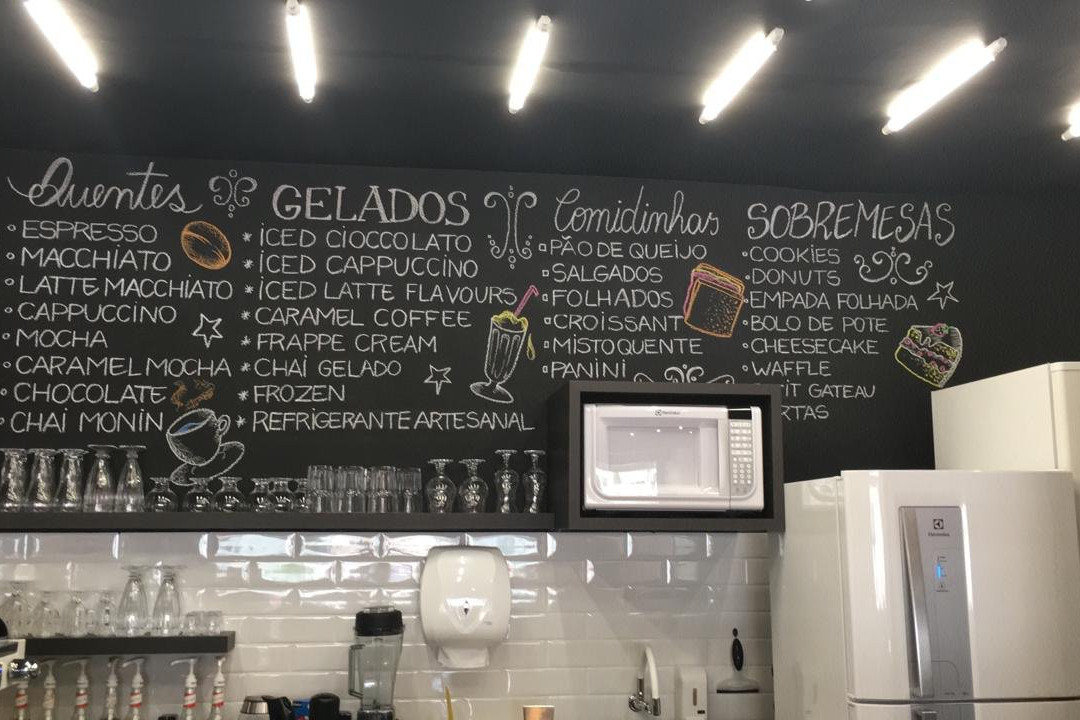 Quentes
ESPRESSO
MACCHIATO
LATTE MACCHIATO
CAPPUCCINO
MOCHA
CARAMEL MOCHA
CHOCOLATE
CHAI MONIN
GELADOS
* ICED CIOCCOLATO
* ICED CAPPUCCINO
* ICED LATTE FLAVOURS
* CARAMEL COFFEE
* FRAPPE CREAM
* CHAI GELADO
* FROZEN
* REFRIGERANTE ARTESANAL
Comidinhas
PÃO DE QUEIJO
SALGADOS
FOLHADOS
CROISSANT
MISTO QUENTE
PANINI
SOBREMESAS
COOKIES
DONUTS
EMPADA FOLHADA
BOLO DE POTE
CHEESECAKE
WAFFLE
GATEAU
Electrolux
Electrolux